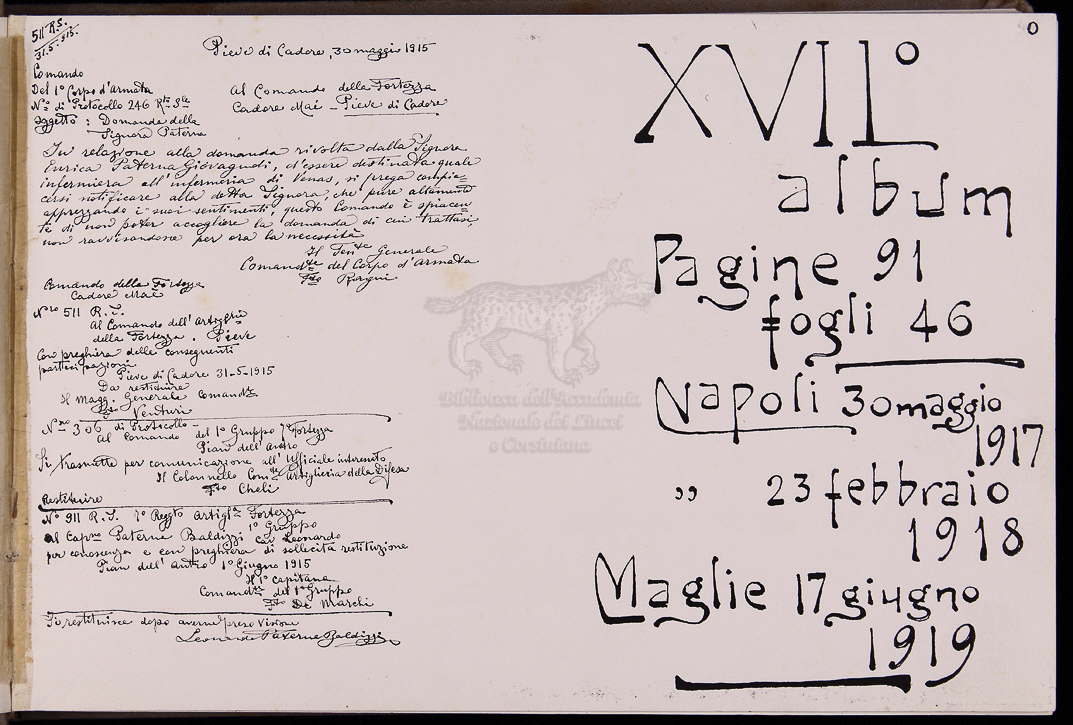 511 R.S.
31.5.915.
Pieve di Cadore, 30 maggio 1915
Comando
Del 1° Corpo d'armata
N.° di Protocollo 246 R.to S.le
oggetto : Domanda della
Signora Paterna
al Comando della Fortezza
Cadore Maè - Pieve di Cadore
In relazione alla domanda rivolta dalla Signora
Enrica Paterna Giovagnoli, d'essere destinata quale
infermiera all'infermeria di Venas, si prega compia=
cersi notificare alla detta Signora, che pure altamente
apprezzando i suoi sentimenti, questo Comando è spiacen=
te di non poter accogliere la domanda di cui trattasi,
non ravvisandone per ora la necessità
Il Ten.te Generale
Comand.te del Corpo d'Armata
F.to Ragni
Comando della Fortezza
Cadore Maè
N.ro 511 R.S.
al Comando dell'Artiglie
della Fortezza. Pieve
Con preghiera delle conseguenti
partecipazioni
Pieve di Cadore 31-5-1915
Da restituire
Il Magg. Generale Comand.te
F.to Venturi
N.ro 306 di Protocollo
al Comando del 1° Gruppo 7° Fortezza
Pian dell'Antro
Si trasmette per comunicazione all'Ufficiale interessato
Il Colonnello Com.te Artiglieria della Difesa
F.to Cheli
Restituire
N° 911 R.S. 7° Regg.to Artigl.a Fortezza
1° Gruppo
al Cap.no Paterna Baldizzi cav Leonardo
per conoscenza e con preghiera di sollecita restituzione
Pian dell'Antro 1° giugno 1915
Il 1° capitano
Comand.te del 1° Gruppo
F.to De Marchi
Si restituisce dopo averne preso visione
Leonardo Paterna Baldizzi
0
XVII°
album
Pagine 91
fogli 46
Napoli 30 maggio
1917
„ 23 febbraio
1918
Maglie 17 giugno
1919
Biblioteca dell'Accademia
Nazionale dei Lincei
e Corsiniana